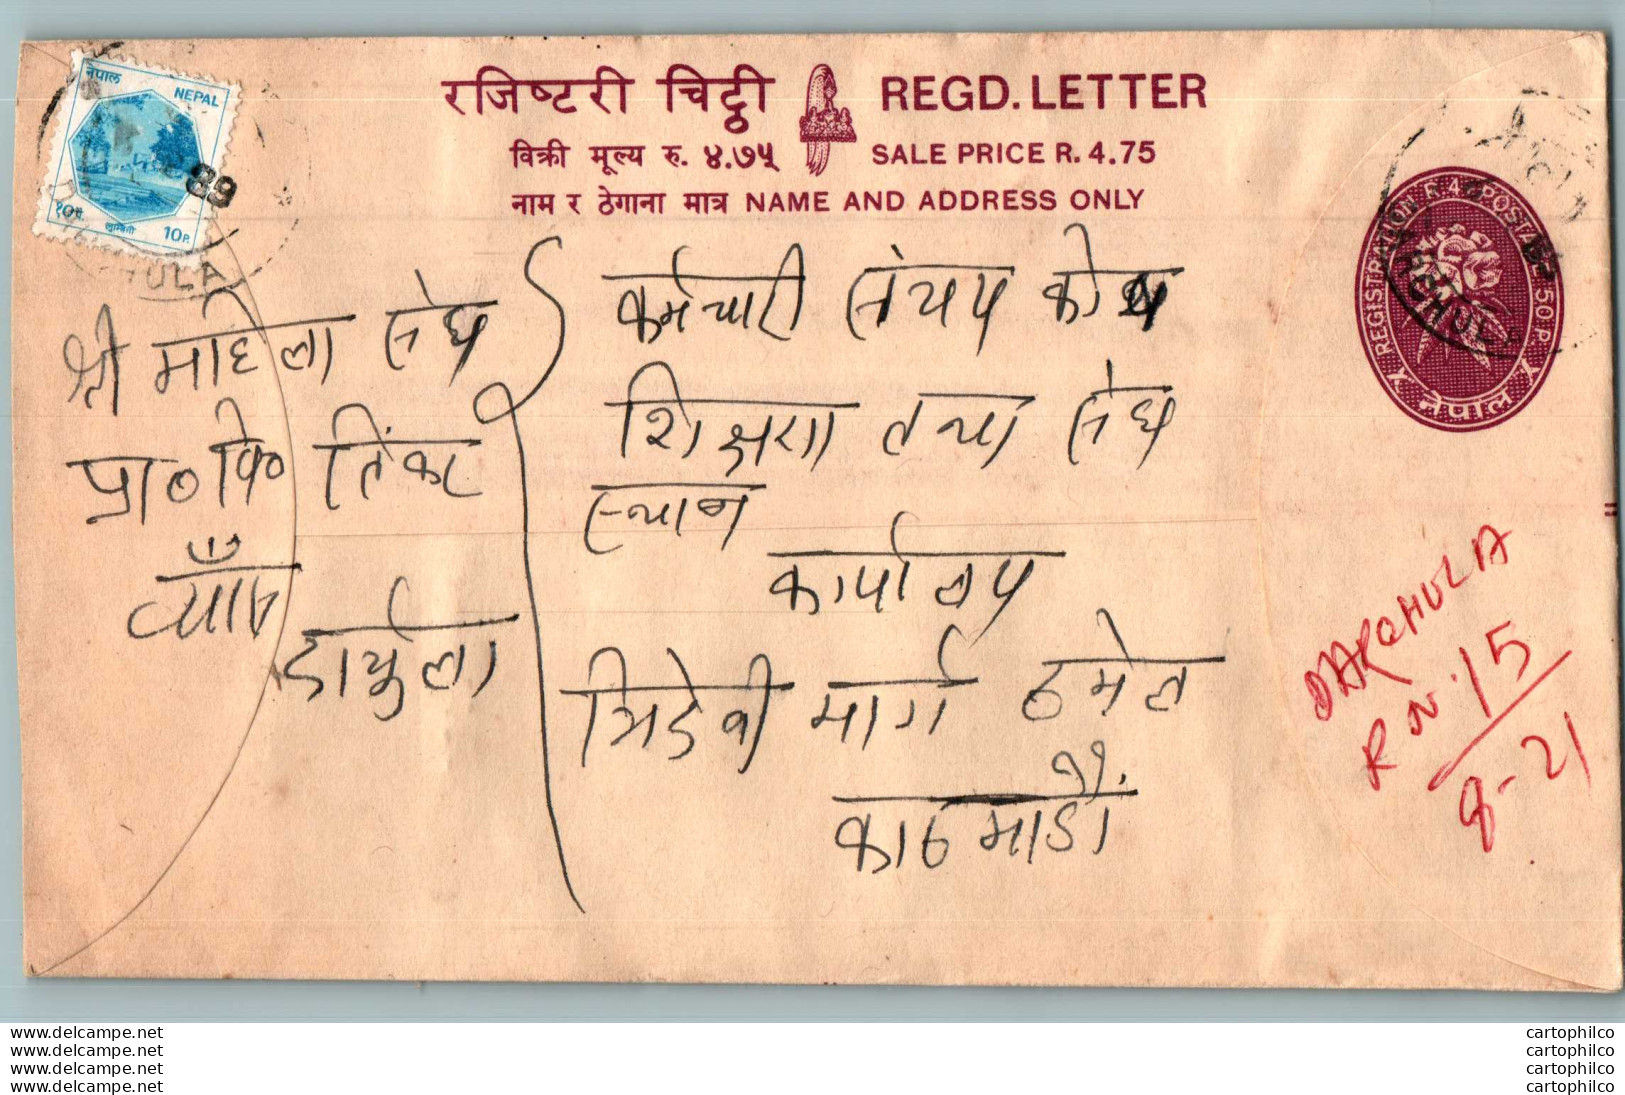 नेपाल
NEPAL
१०पै.
लुम्बिनी
10P.
89
HULA
रजिष्टरी चिठ्ठी REGD. LETTER
विक्री मूल्य रु. ४.७५ SALE PRICE R. 4.75
नाम र ठेगाना मात्र NAME AND ADDRESS ONLY
REGISTRATION R 4 POSTAGE 50 P.
नेपाल
RCHULA
श्री महिला संघ
प्रा०वि० तिंकर
व्याँस
दार्चुला
कर्मचारी संचय कोष
शिक्षण तथा संघ
स्थान
कार्यालय
त्रिदेवी मार्ग ठमेल
काठमाडौं
DARCHULA
R N. 15
8-21
www.delcampe.net
www.delcampe.net
www.delcampe.net
www.delcampe.net
cartophilco
cartophilco
cartophilco
cartophilco